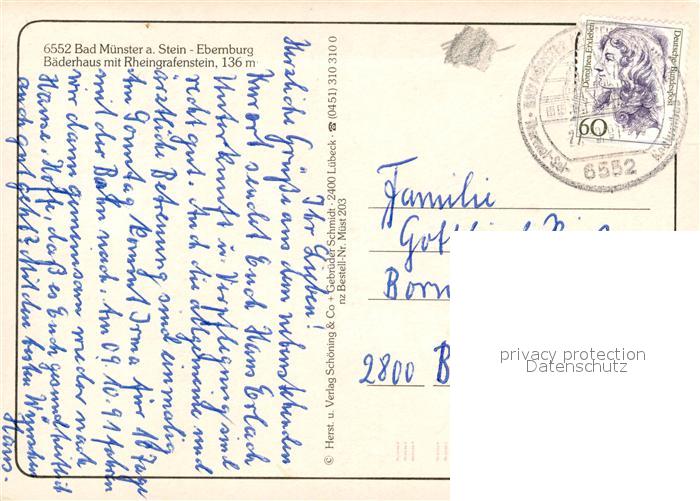 6552 Bad Münster a. Stein - Ebernburg
Bäderhaus mit Rheingrafenstein, 136 m
Ihr Lieben!
Herzliche Grüße aus dem nebenstehenden
Kurort sendet Euch Hans Erlach
Unterkunft u. Verpflegung sind
recht gut. Auch die allgemeine und
ärztliche Betreuung sind einmalig
Am Sonntag kommt Irma für 10 Tage
mit der Bahn nach. Am 09.10.91 fahren
wir dann gemeinsam wieder nach
Hause. Hoffe, daß es Euch gesundheitlich
auch gut geht. Mit den besten Wünschen
Hans.
© Herst. u. Verlag Schöning & Co + Gebrüder Schmidt · 2400 Lübeck · ☎ (0451) 310 310 0
nz Bestell-Nr. Müst 203
Dorothea Erxleben
Deutsche Bundespost
60
6552
Familie
Born
2800 B
privacy protection
Datenschutz